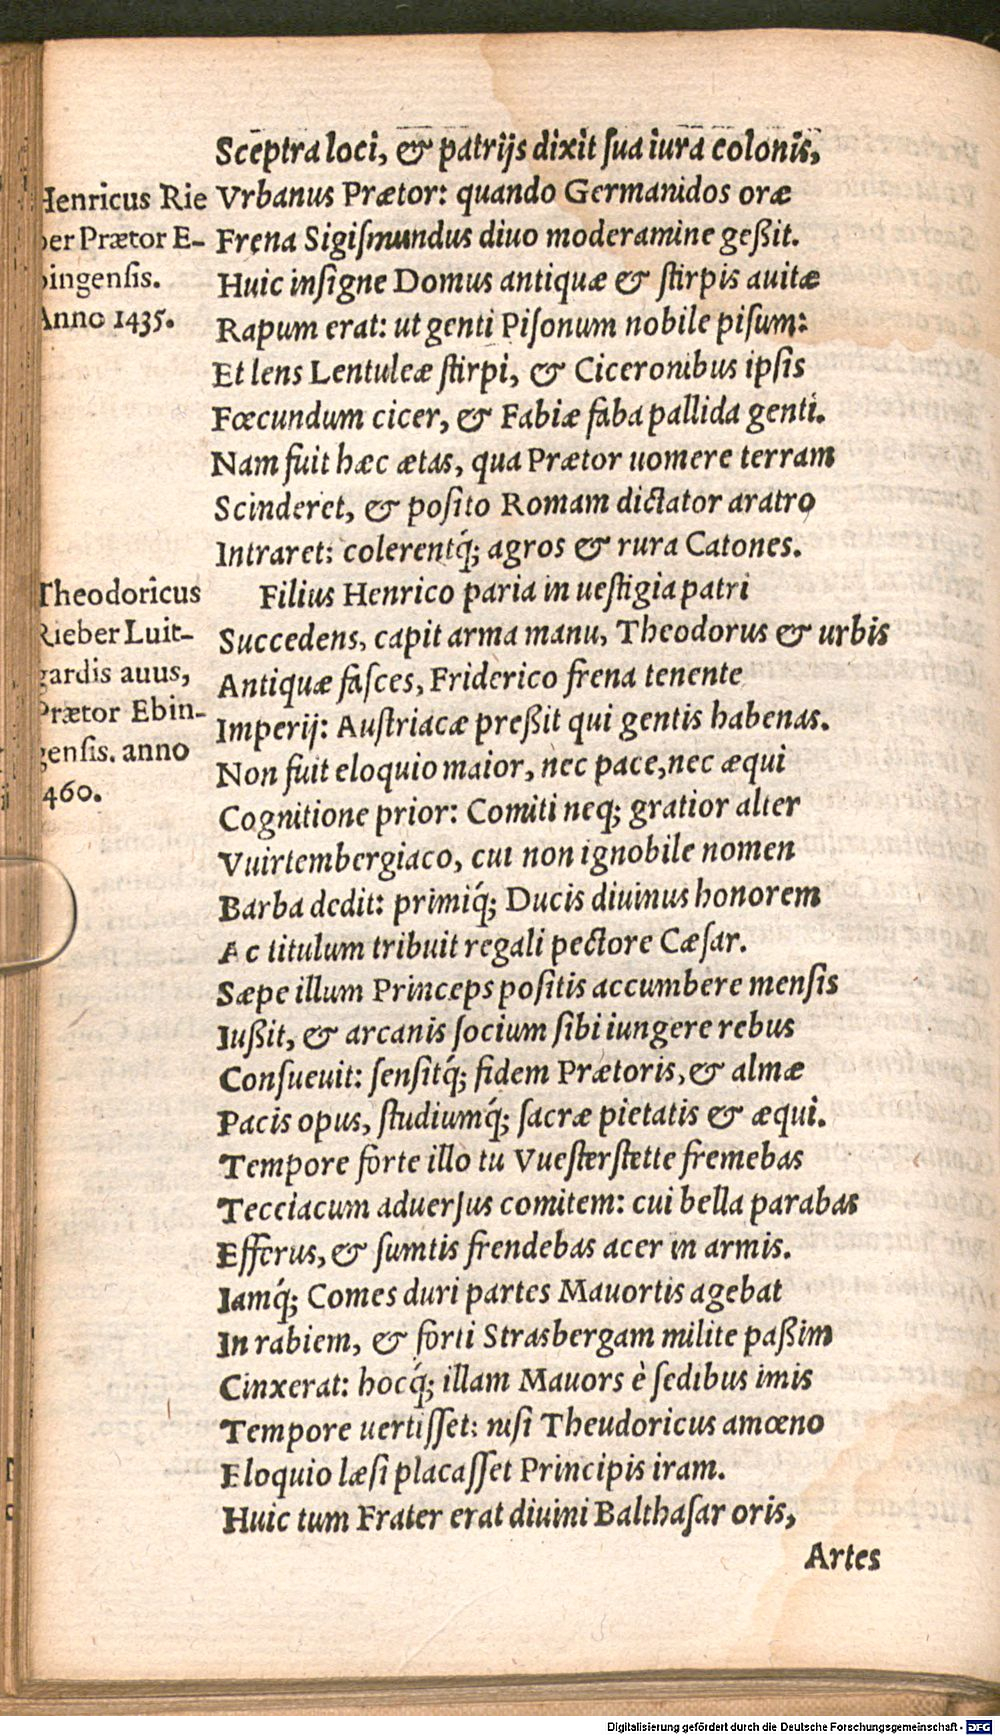 Sceptra loci, & patrijs dixit ſua iura colonis,
Vrbanus Prætor: quando Germanidos oræ
Frena Sigiſmundus diuo moderamine geßit.
Huic inſigne Domus antiquæ & ſtirpis auitæ
Rapum erat: ut genti Piſonum nobile piſum:
Et lens Lentuleæ ſtirpi, & Ciceronibus ipſis
Fœcundum cicer, & Fabiæ faba pallida genti.
Nam fuit hæc ætas, qua Prætor uomere terram
Scinderet, & poſito Romam dictator aratro
Intraret: colerentq́; agros & rura Catones.
Filius Henrico paria in ueſtigia patri
Succedens, capit arma manu, Theodorus & urbis
Antiquæ faſces, Friderico frena tenente
Imperij: Auſtriacæ preßit qui gentis habenas.
Non fuit eloquio maior, nec pace, nec æqui
Cognitione prior: Comiti neq; gratior alter
Vuirtembergiaco, cui non ignobile nomen
Barba dedit: primiq́; Ducis diuinus honorem
Ac titulum tribuit regali pectore Cæſar.
Sæpe illum Princeps poſitis accumbere menſis
Iußit, & arcanis ſocium ſibi iungere rebus
Conſueuit: ſenſitq́; fidem Prætoris, & almæ
Pacis opus, ſtudiumq́; ſacræ pietatis & æqui.
Tempore forte illo tu Vueſterſtette fremebas
Tecciacum aduerſus comitem: cui bella parabas
Efferus, & ſumtis frendebas acer in armis.
Iamq́; Comes duri partes Mauortis agebat
In rabiem, & forti Strasbergam milite paßim
Cinxerat: hocq́; illam Mauors è ſedibus imis
Tempore uertiſſet: niſi Theudoricus amœno
Eloquio læſi placaſſet Principis iram.
Huic tum Frater erat diuini Balthaſar oris,
Artes
Henricus Rie
ber Prætor E-
bingenſis.
Anno 1435.
Theodoricus
Rieber Luit-
gardis auus,
Prætor Ebin-
genſis. anno
460.
Digitalisierung gefördert durch die Deutsche Forschungsgemeinschaft - DFG